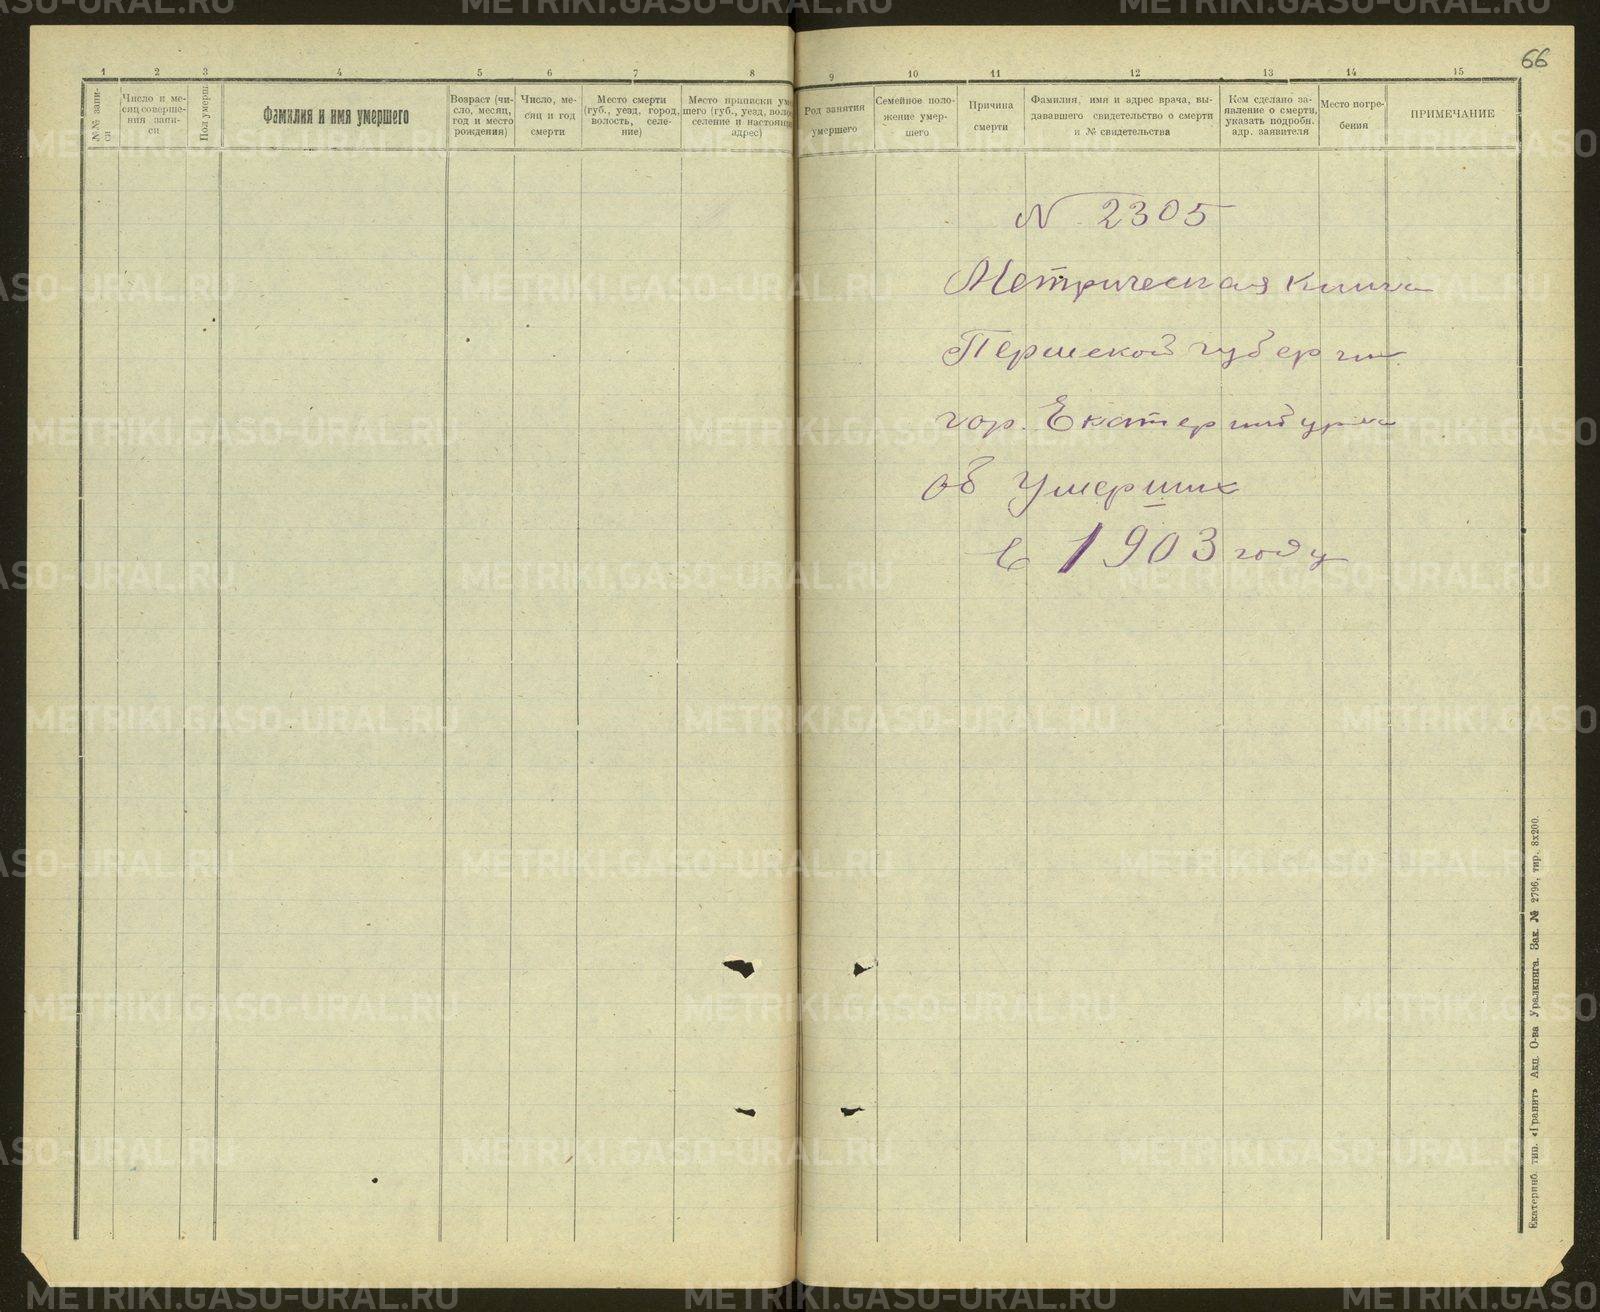 66
1 2 3 4 5 6 7 8 9 10 11 12 13 14 15
№№ запи-
си
Число и ме-
сяц соверше-
ния запи-
си
Пол умерш.
Фамилия и имя умершего
Возраст (чи-
сло, месяц,
год и место
рождения)
Число, ме-
сяц и год
смерти
Место смерти
(губ., уезд, город,
волость, селе-
ние)
Место приписки ум
шего (губ., уезд, воло
селение и настоящ
адрес)
Род занятия
умершего
Семейное поло-
жение умер-
шего
Причина
смерти
Фамилия, имя и адрес врача, вы-
дававшего свидетельство о смерти
и № свидетельства
Кем сделано за-
явление о смерти,
указать подробн.
адр. заявителя
Место погре-
бения
ПРИМЕЧАНИЕ
N 2305
Метрическая книга
Пермской губернии
гор. Екатеринбурга
об умерших
в 1903 году
Екатеринб. тип. «Гранит» Акц. О-ва Уралкнига. Зак. № 2796, тир. 8х200.
METRIKI.GASO-URAL.RU